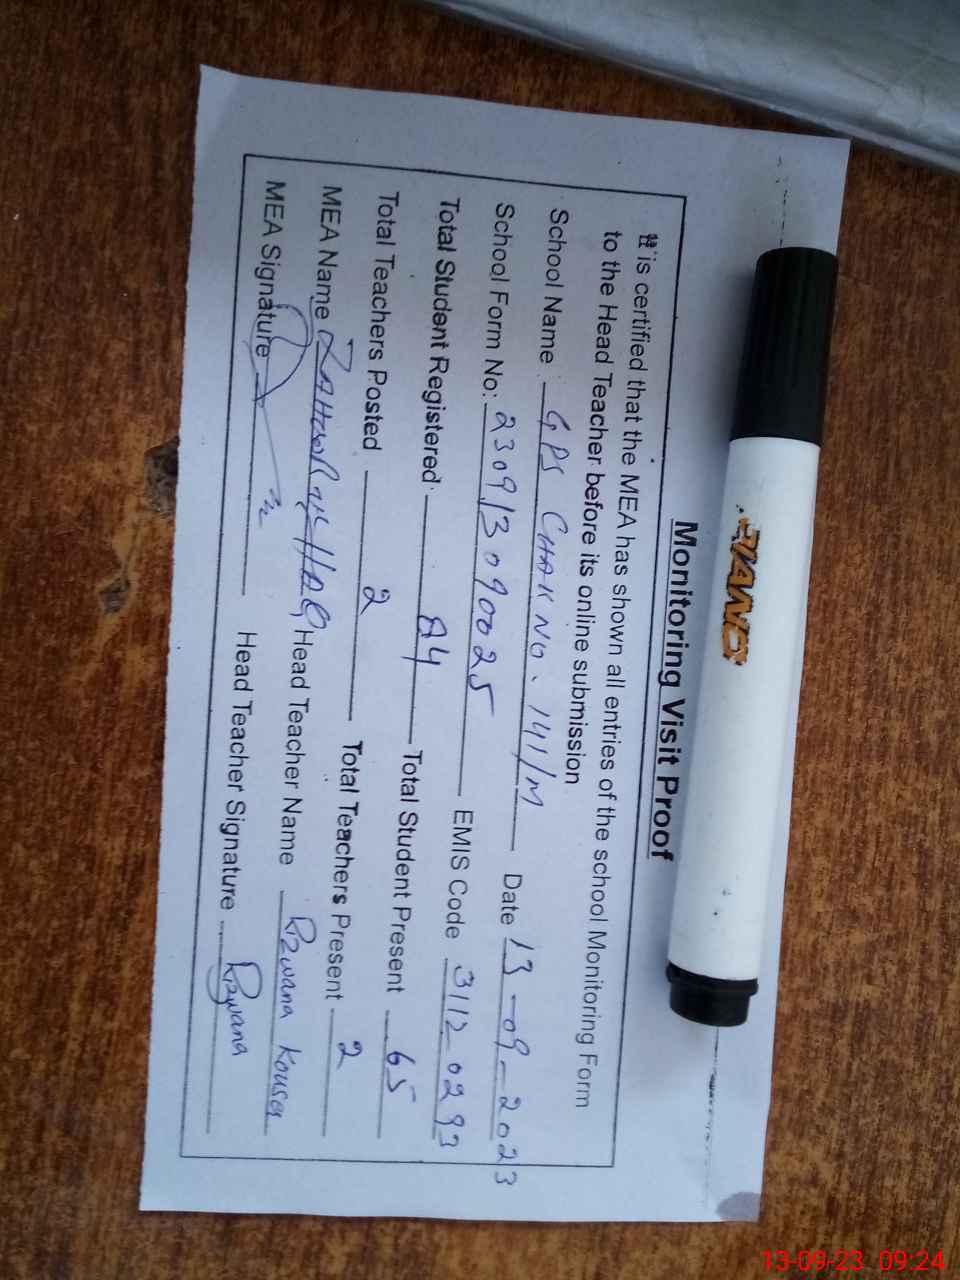 Monitoring Visit Proof
It is certified that the MEA has shown all entries of the school Monitoring Form
to the Head Teacher before its online submission
School Name : GPS CHAK NO. 141/M Date 13-09-2023
School Form No: 23091309 0025 EMIS Code 3112 0293
Total Student Registered: 84 Total Student Present 65
Total Teachers Posted 2 Total Teachers Present 2
MEA Name Head Teacher Name Rizwana Kousar
MEA Signature Head Teacher Signature Rizwana
PIANO
13-09-23 09:24